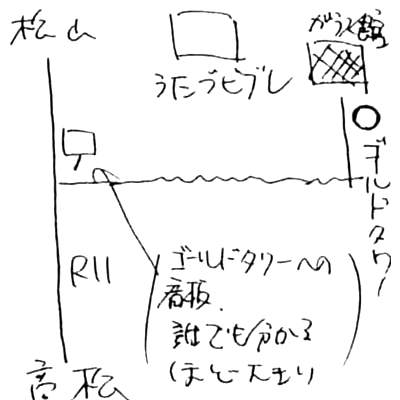 松山
うたづビブレ
がラス館
ゴールドタワー
R11
ゴールドタワーへの
看板.
誰でも分かる
ほど大きい
高松